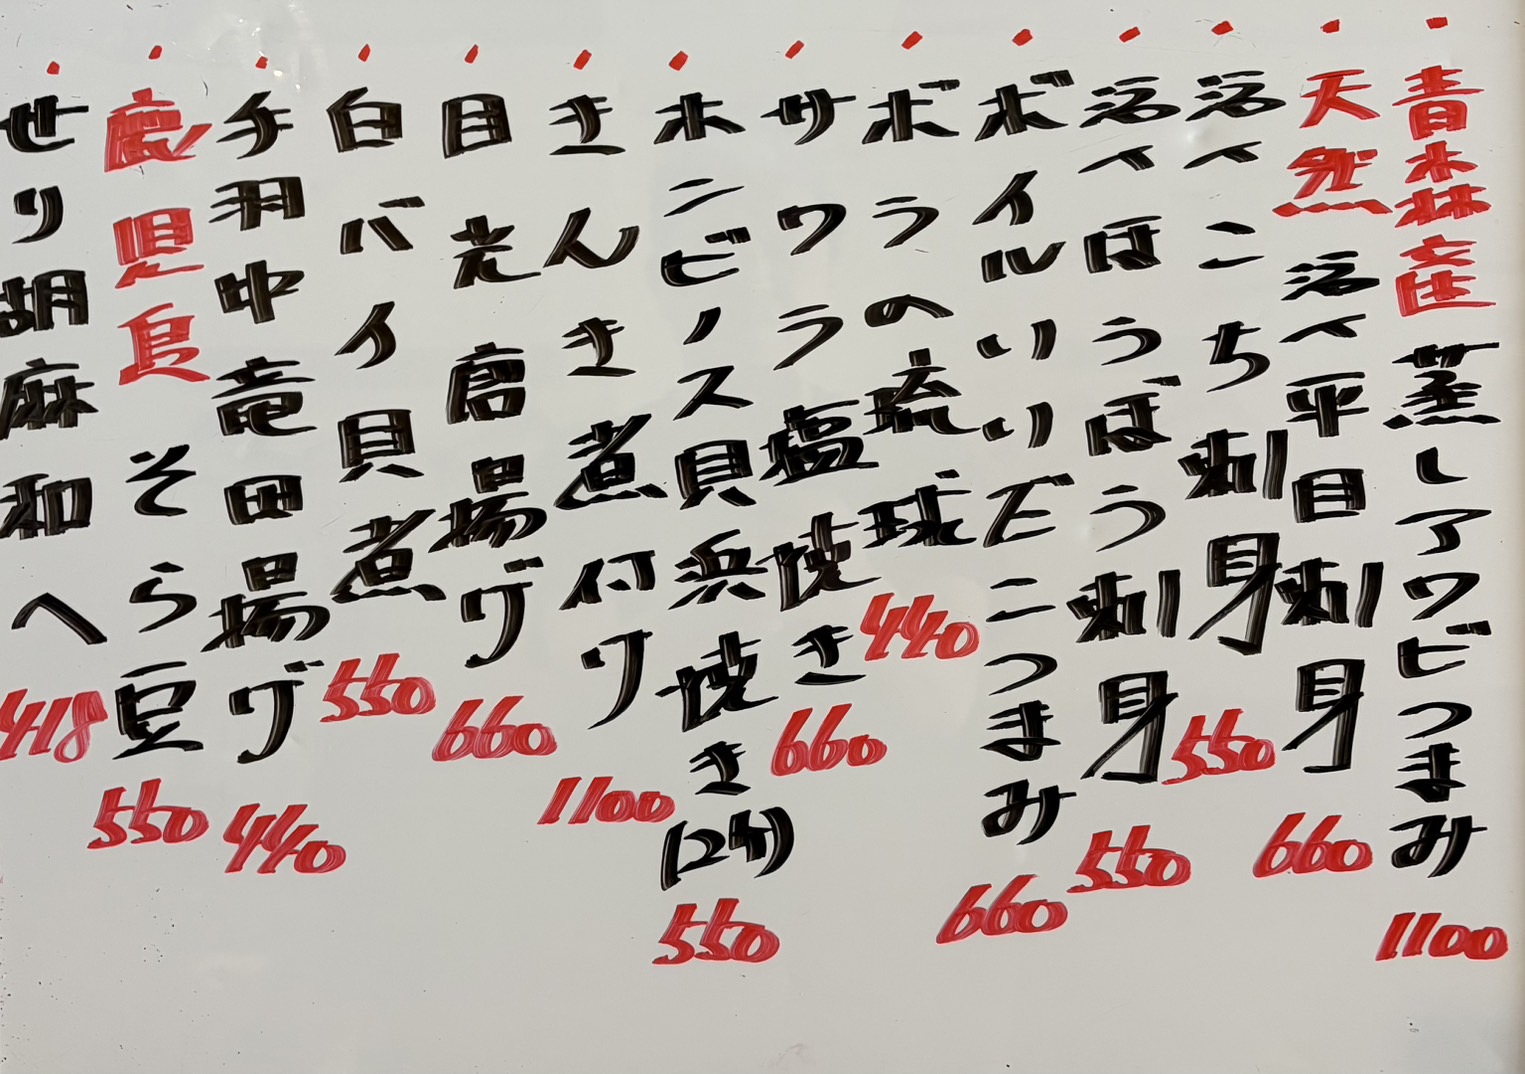 青森産蒸しアワビつまみ 1100
天然 活〆平目刺身 660
活〆こち刺身 550
活〆ほうぼう刺身 550
ボイルいいだこつまみ 660
ボラの琉球 440
サワラ塩焼き 660
ホンビノス貝浜焼き(2ケ) 550
きんき煮付ケ 1100
目光唐揚ゲ 660
白バイ貝煮 550
手羽中竜田揚ゲ 440
鹿児島そら豆 550
せり胡麻和へ 418